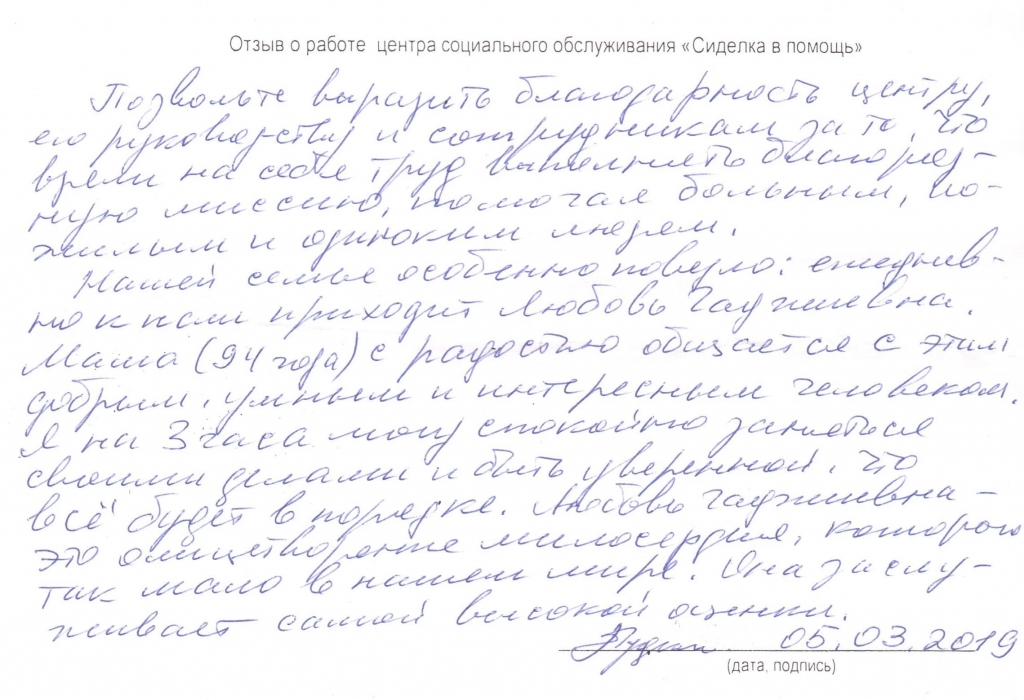 Отзыв о работе центра социального обслуживания «Сиделка в помощь»
Позвольте выразить благодарность центру,
его руководству и сотрудникам за то, что
взяли на себя труд выполнять благород-
ную миссию, помогая больным, по-
жилым и одиноким людям.
Нашей семье особенно повезло: ежеднев-
но к нам приходит Любовь Гаджиевна.
Мама (94 года) с радостью общается с этим
добрым, умным и интересным человеком.
Я на 3 часа могу спокойно заняться
своими делами и быть уверенной, что
всё будет в порядке. Любовь Гаджиевна -
это олицетворение милосердия, которого
так мало в нашем мире. Она заслу-
живает самой высокой оценки.
05.03.2019
(дата, подпись)